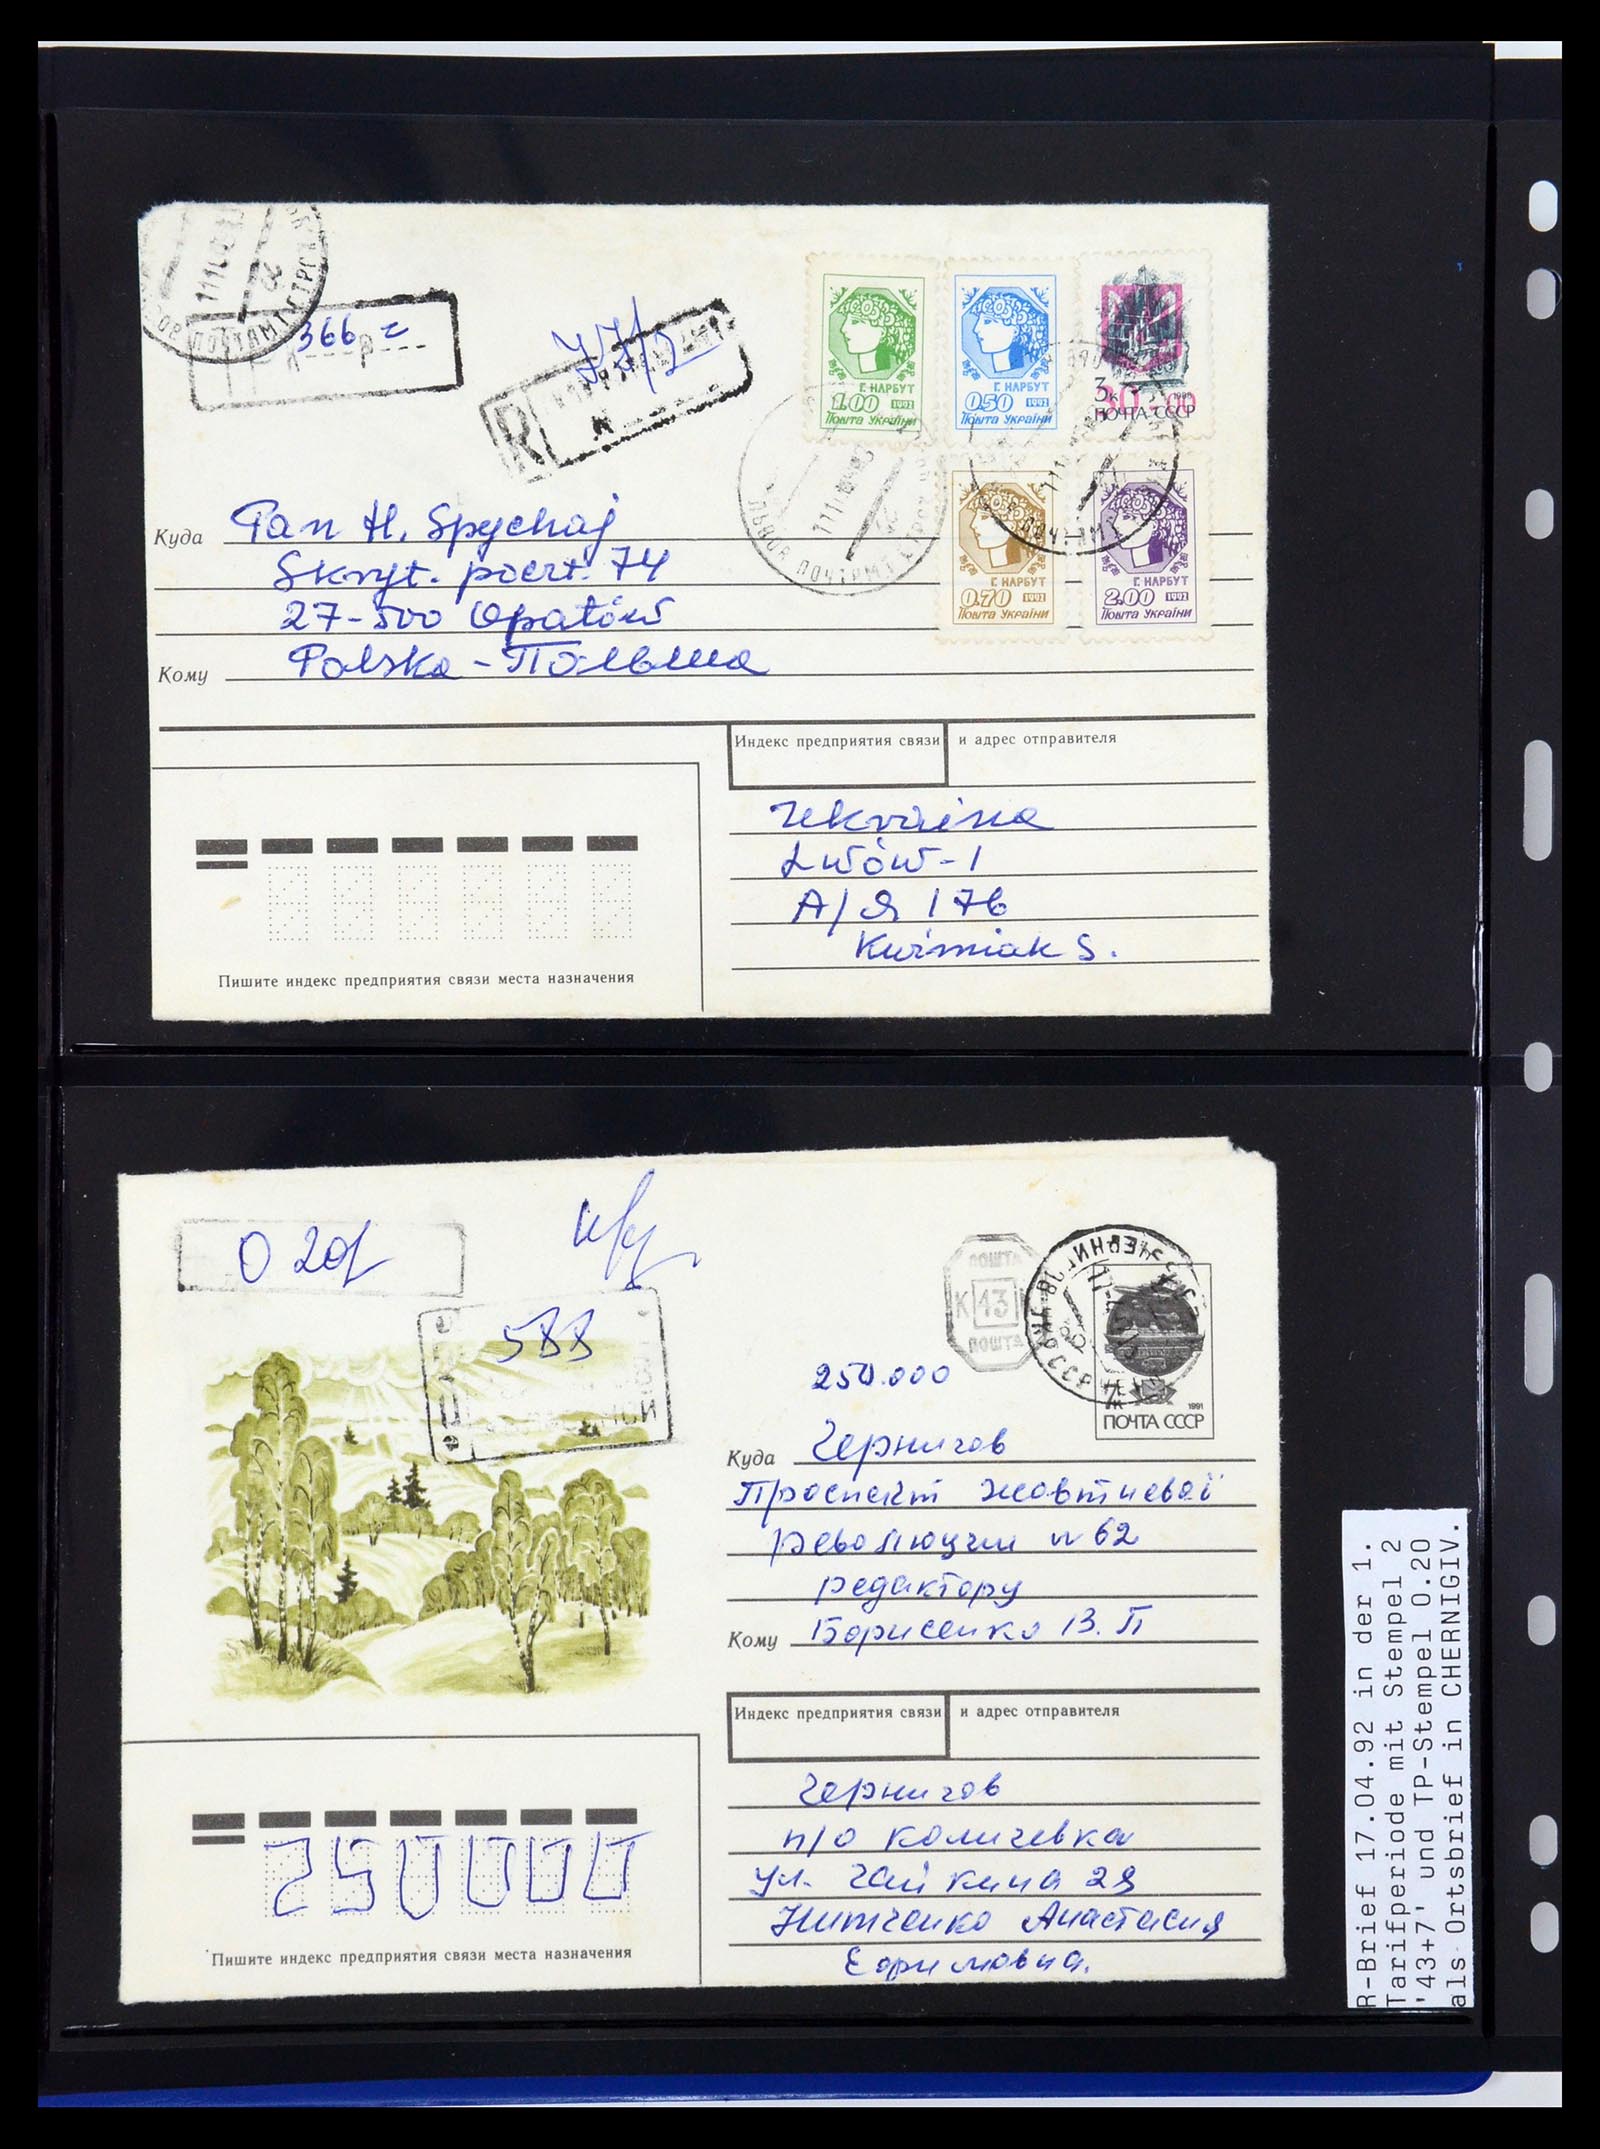 366 г
R
Г. НАРБУТ
1.00 1992
Пошта України
Г. НАРБУТ
0.50 1992
Пошта України
3к
30.00
ПОЧТА СССР
Г. НАРБУТ
0.70 1992
Пошта України
Г. НАРБУТ
2.00 1992
Пошта України
Куда Pan H. Spychaj
Skryt. poczt. 74
27-500 Opatów
Кому Polska - Польша
Индекс предприятия связи и адрес отправителя
Ukraina
Lwów-1
А/Я 176
Kuźmiak S.
Пишите индекс предприятия связи места назначения
0 20
588
ПОШТА
К 43
ПОШТА
7к
1991
ПОЧТА СССР
250.000
Куда Чернигов
Проспект жовтневої
революции n 62
редактору
Кому Борисенко В. П
Индекс предприятия связи и адрес отправителя
Чернигов
п/о Количевка
ул. Чайкина 29
Нитченко Анастасия
250000
Пишите индекс предприятия связи места назначения
R-Brief 17.04.92 in der 1.
Tarifperiode mit Stempel 2
'43+7' und TP-Stempel 0.20
als Ortsbrief in CHERNIGIV.